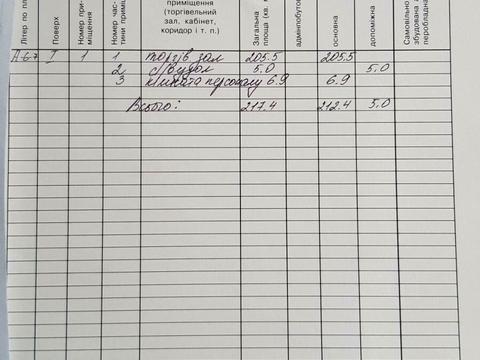 Літер по пл
Поверх
Номер при-
міщення
Номер час-
тини примі
приміщення
(торгівельний
зал, кабінет,
коридор і т. п.)
Загальна
площа (кв. м
адмінгобуто
основна
допоміжна
Самовільно
збудована а
переобладна
А-6-7 I 1 1 торгів. зал 205.5 205.5
2 с/вузол 5.0 5.0
3 кімната персоналу 6.9 6.9
Всього: 217.4 212.4 5.0